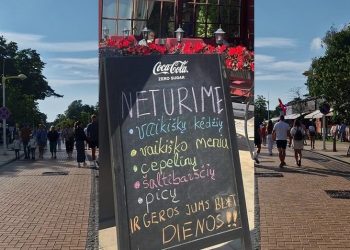 Coca-Cola
ZERO SUGAR
NETURIME
• vaikiškų kėdžių
• vaikiško meniu
• cepelinų
• šaltibarščių
• picų
IR GEROS JUMS BLET
DIENOS!!!